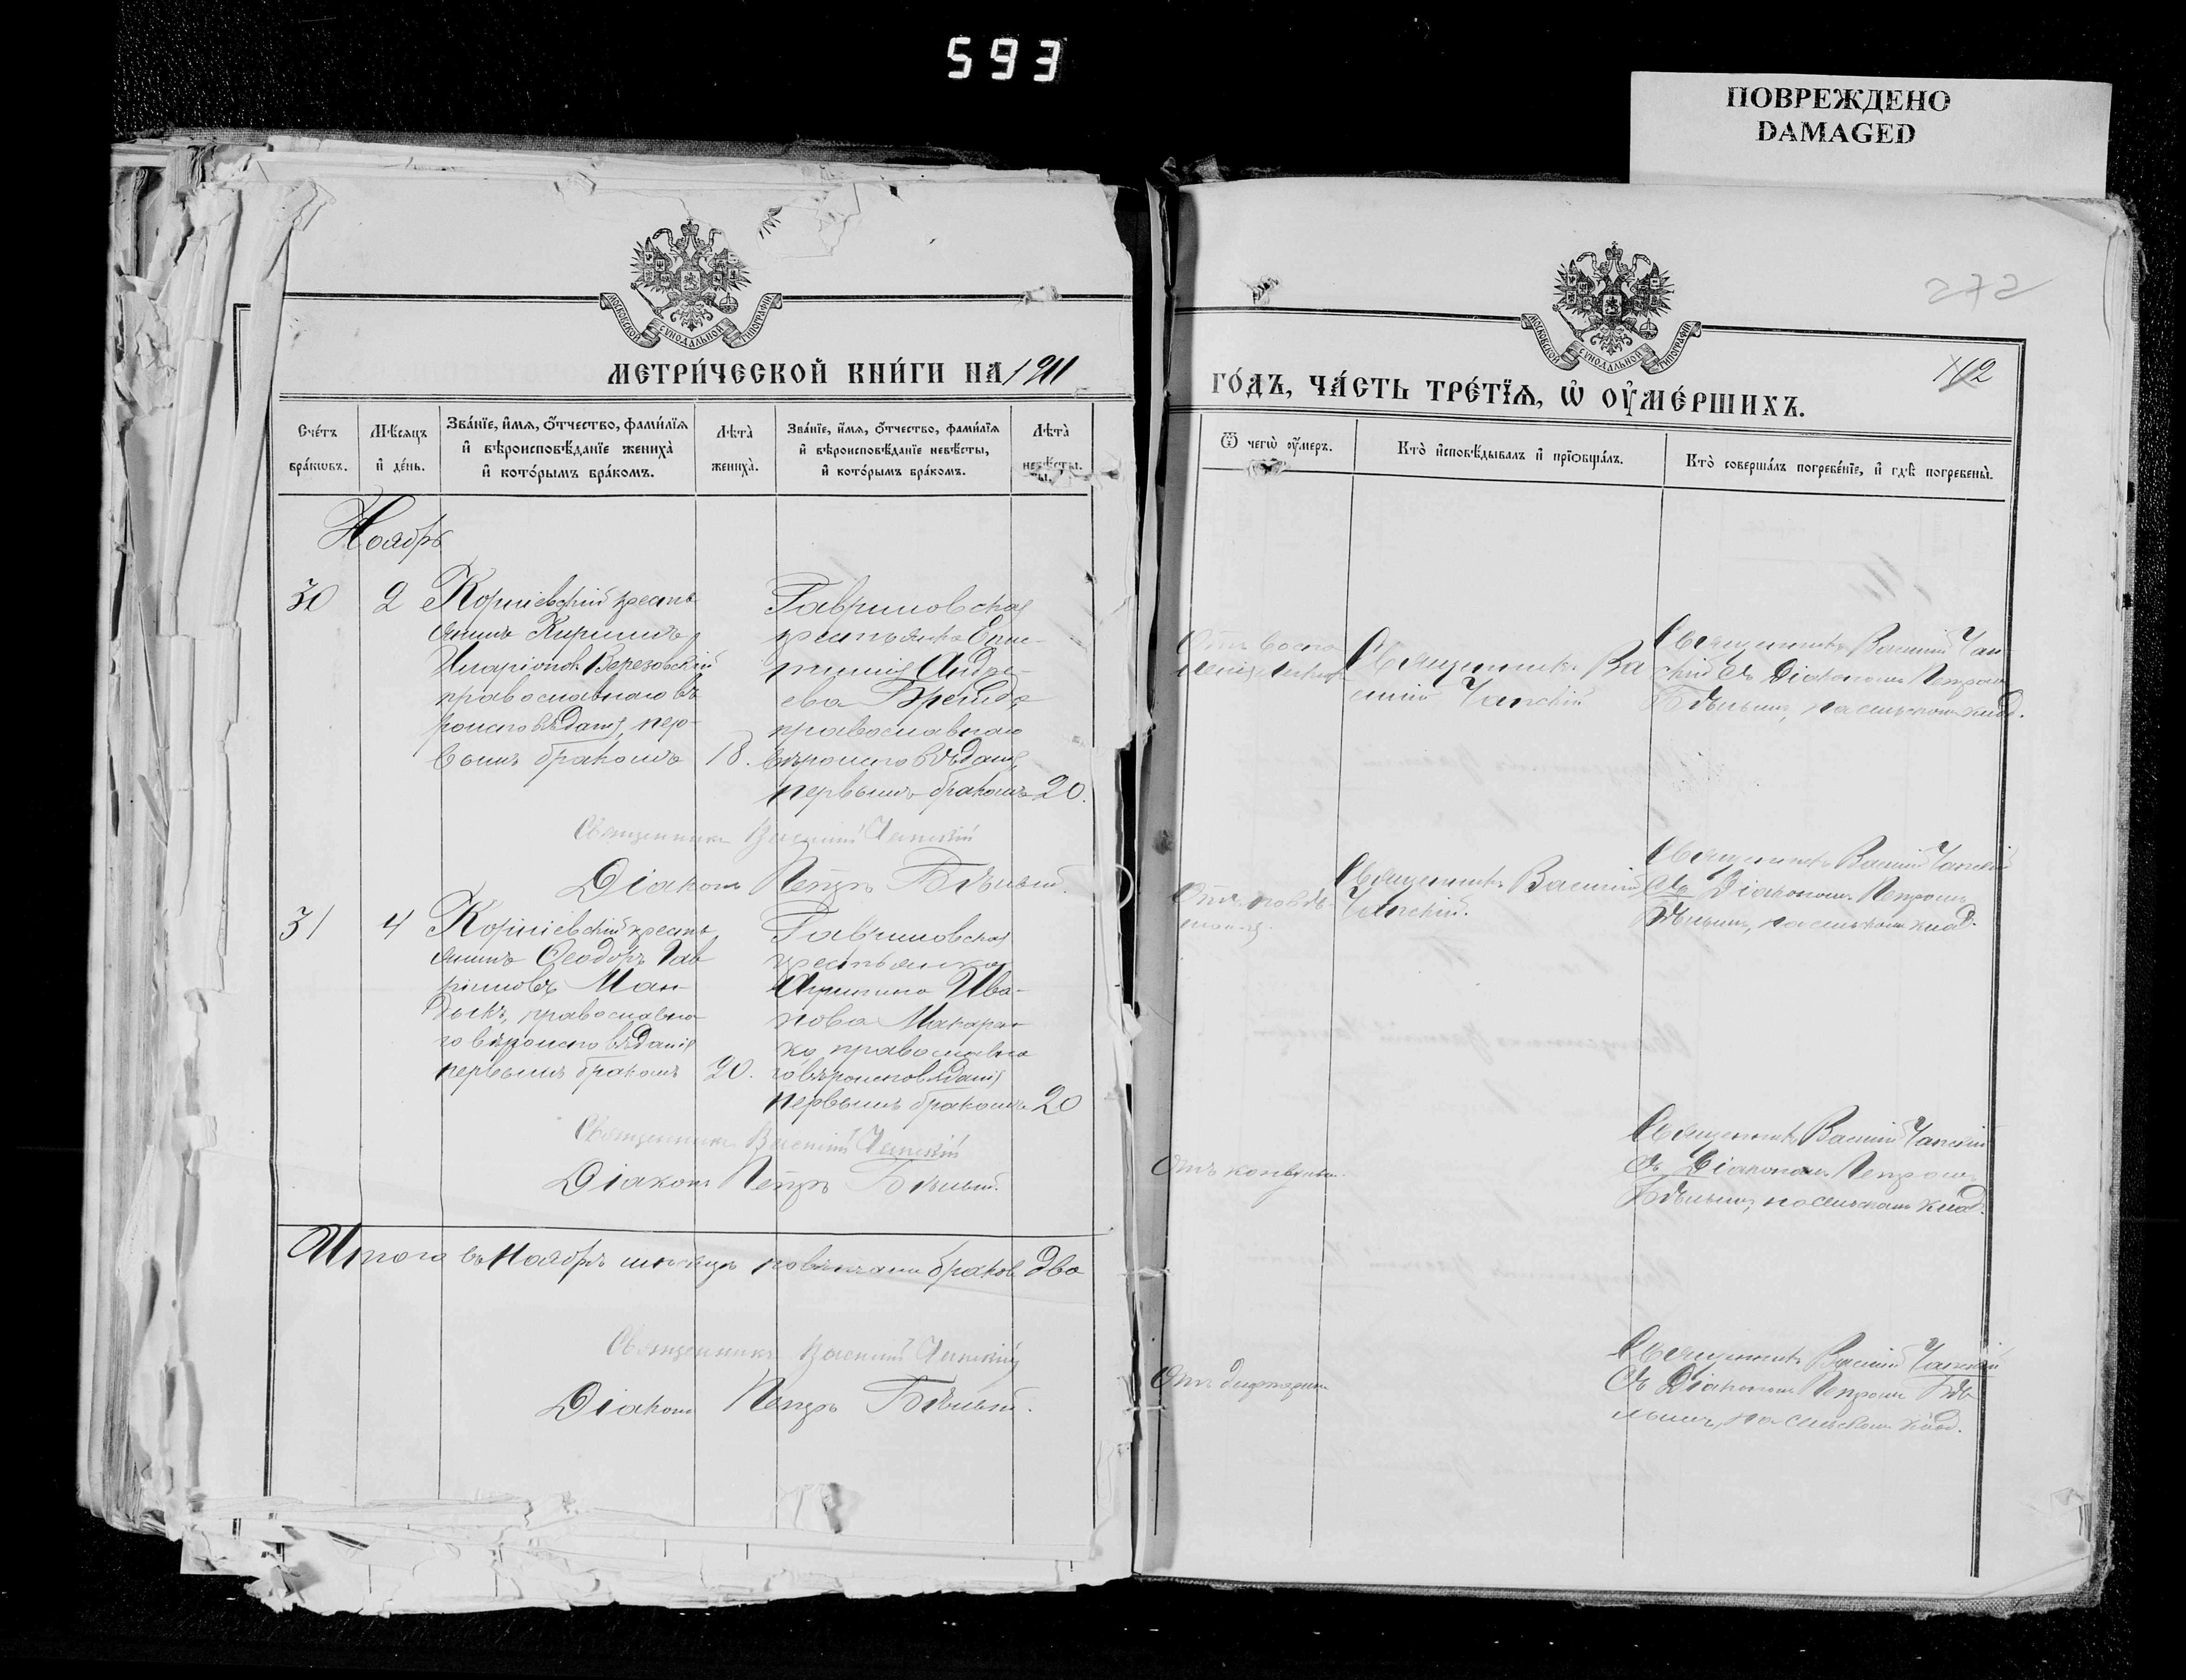 593
ПОВРЕЖДЕНО
DAMAGED
МОСКОВСКОЙ СѴНОДАЛЬНОЙ ТИПОГРАФІИ
МЕТРИ́ЧЕСКОЙ КНИ́ГИ НА 1911
Сче́тъ бра́кѡвъ.
Мѣ́сѧцъ и҆ де́нь.
Зва́нїе, и҆́мѧ, ѻ҆́тчество, фами́лїѧ
и҆ вѣроисповѣ́данїе жениха̀
и҆ кото́рымъ бра́комъ.
Лѣта̀ жениха̀.
Зва́нїе, и҆́мѧ, ѻ҆́тчество, фами́лїѧ
и҆ вѣроисповѣ́данїе невѣ́сты,
и҆ кото́рымъ бра́комъ.
Лѣта̀ невѣ́сты.
Ноябрь
30
2
Корніевскій кресть
янинъ Кириллъ
Иларіоновъ Березовскій
православнаго вѣ
роисповѣданія, пер-
вымъ бракомъ
18.
Гавриловская
крестьянка
Андре-
ева
православнаго
вѣроисповѣданія,
первымъ бракомъ
20.
Священникъ Василій Чапскій
Діаконъ Петръ Бѣлый.
31
4
Корніевскій кресть
янинъ Ѳеодоръ Гав
риловъ Ман-
дыкъ, православна
го вѣроисповѣданія
первымъ бракомъ
20.
Гавриловская
крестьянка
Агрипина Ива-
нова Макарен
ко, православна
го вѣроисповѣданія
первымъ бракомъ
20
Священникъ Василій Чапскій
Діаконъ Петръ Бѣлый.
Итого въ Ноябрѣ мѣсяцѣ повѣнчани браковъ два
Священникъ Василій Чапскій
Діаконъ Петръ Бѣлый.
272
МОСКОВСКОЙ СѴНОДАЛЬНОЙ ТИПОГРАФІИ
ГО́ДЪ, ЧА́СТЬ ТРЕ́ТЇѦ, Ѡ҆ ОУ҆МЕ́РШИХЪ.
Ѿ чегѡ̀ оу҆́меръ.
Кто̀ и҆сповѣ́дывалъ и҆ прїѡбща́лъ.
Кто̀ соверша́лъ погребе́нїе, и҆ гдѣ̀ погребены̀.
Отъ воспа
ленія легких
Священникъ Ва
силій Чапскій
Священникъ Василій Чап
скій съ Діакономъ Петромъ
Бѣлымъ, на сельскомъ клад.
Священникъ Василій
Чапскій.
Священникъ Василій Чапскій
съ Діакономъ Петромъ
Бѣлымъ, на сельском клад.
Отъ конвульс.
Священникъ Василій Чапскій
съ Діакономъ Петромъ
Бѣлымъ, на сельскомъ клад.
Отъ дифтеріи
Священникъ Василій Чапскій
съ Діакономъ Петромъ Бѣ
лымъ, на сельскомъ клад.